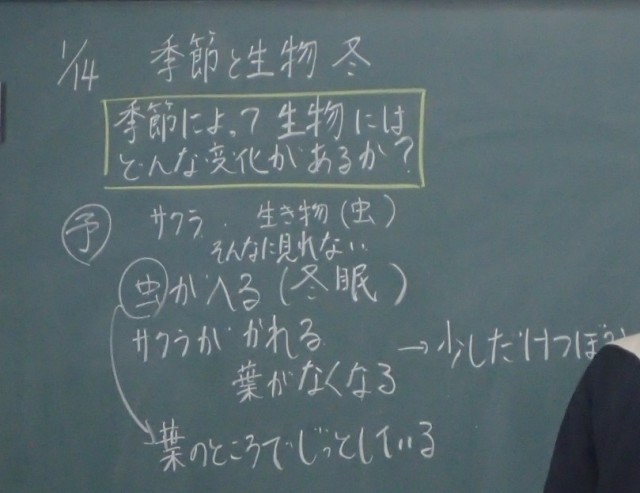 1/14 季節と生物 冬
季節によって生物には
どんな変化があるか?
予 サクラ 生き物(虫)
そんなに見れない
虫がへる(冬眠)
サクラがかれる
→少しだけつぼ
葉がなくなる
葉のところでじっとしている